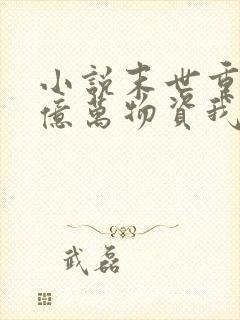 小說末世重
億萬物資我
武磊